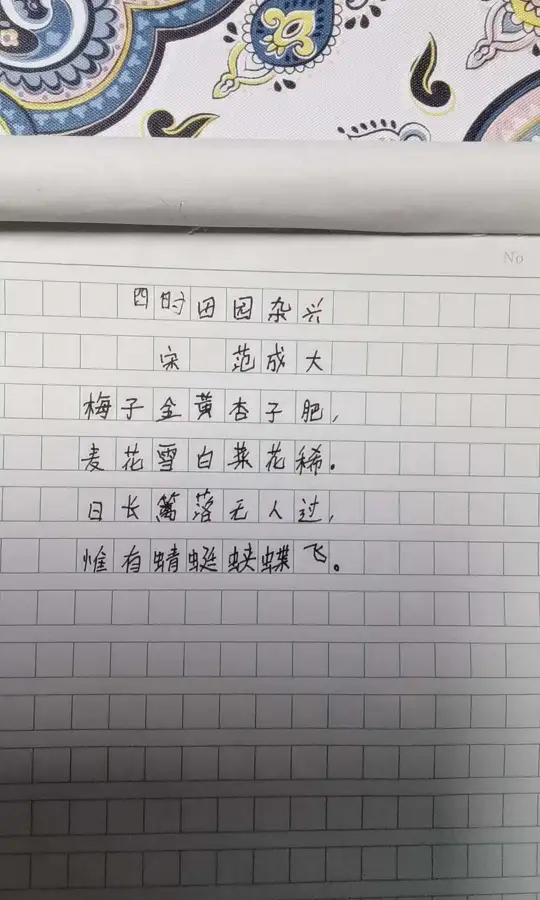 No
四时田园杂兴
宋 范成大
梅子金黄杏子肥，
麦花雪白菜花稀。
日长篱落无人过，
惟有蜻蜓蛱蝶飞。